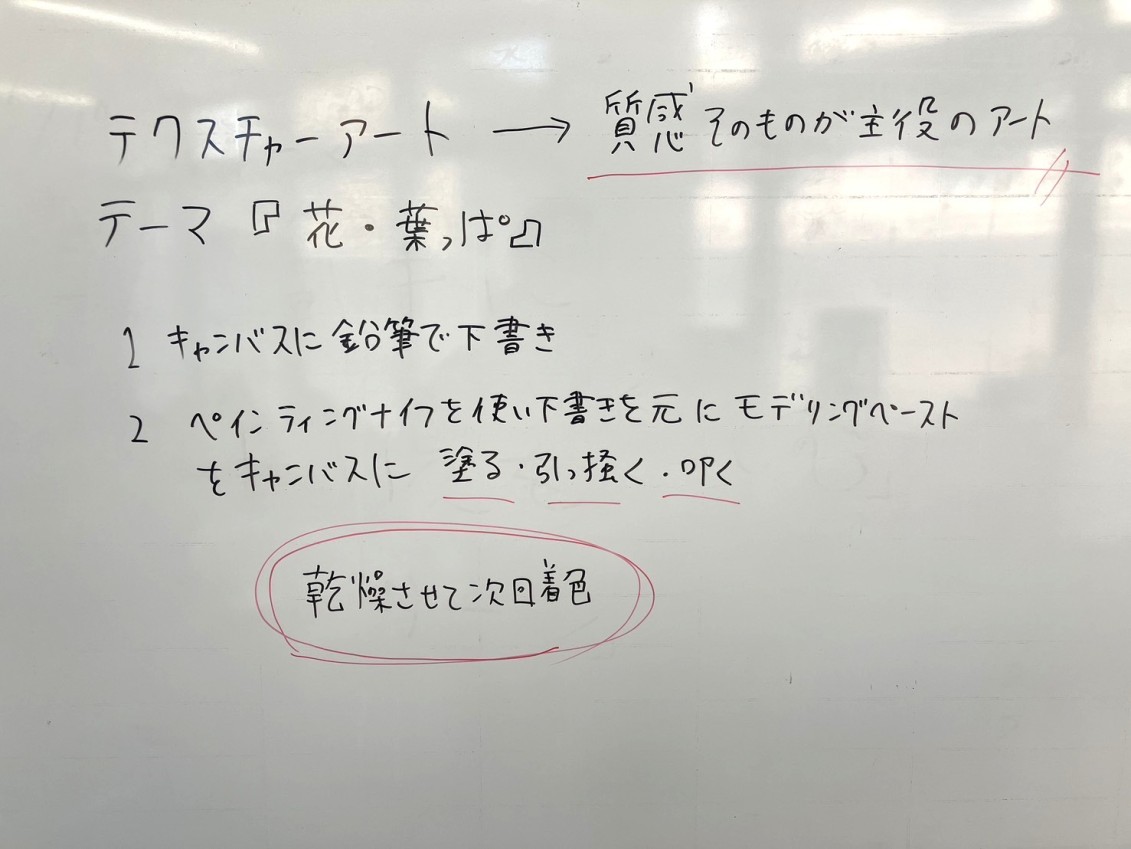 テクスチャーアート → 質感そのものが主役のアート
テーマ『花・葉っぱ』
1 キャンバスに鉛筆で下書き
2 ペインティングナイフを使い下書きを元にモデリングペースト
をキャンバスに 塗る・引っ掻く・叩く
乾燥させて次回着色